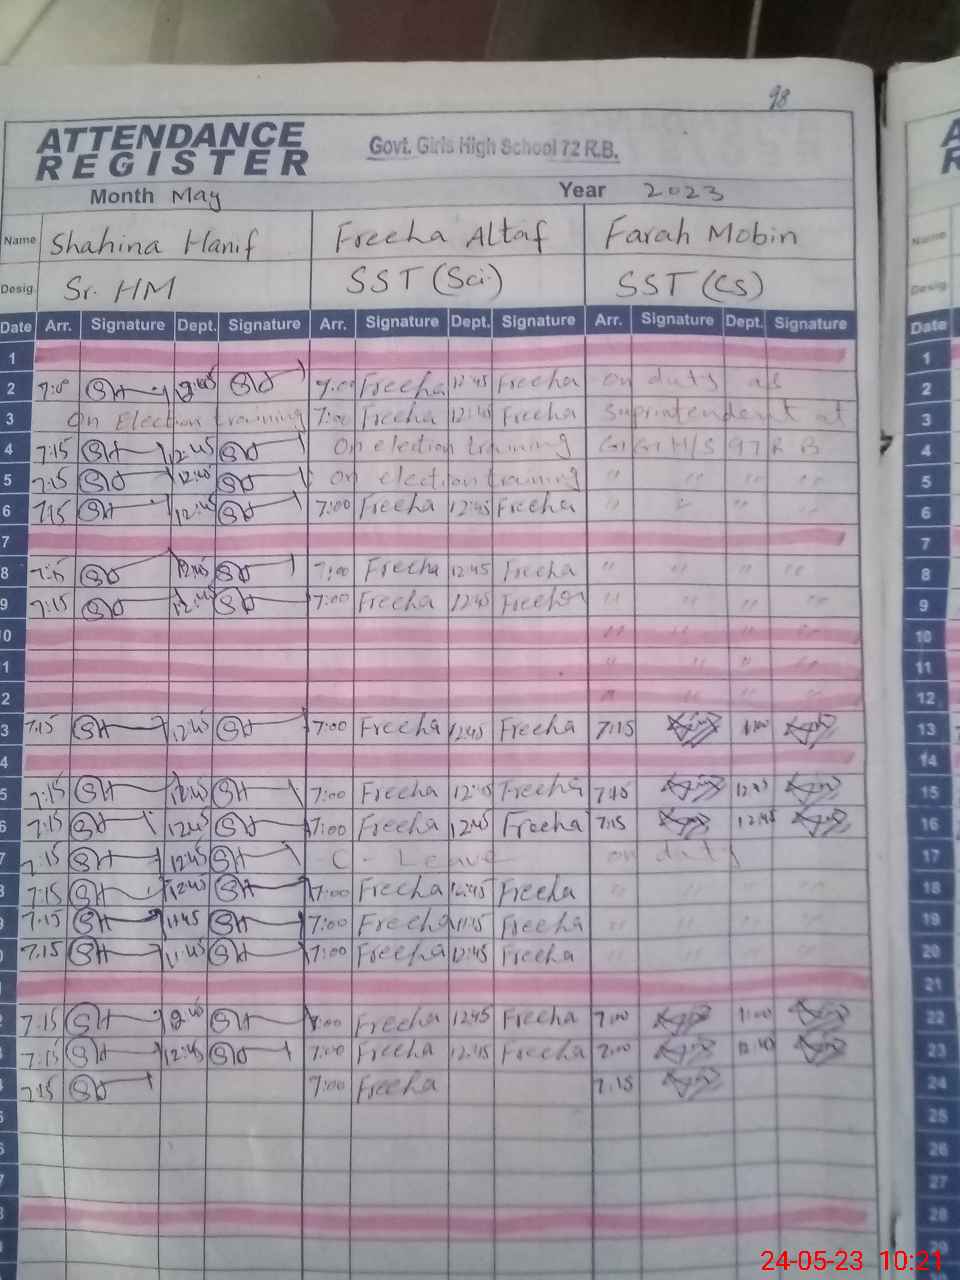 98
ATTENDANCE
REGISTER
Govt. Girls High School 72 R.B.
Month May Year 2023
Name Shahina Hanif Freeha Altaf Farah Mobin
Desig. Sr. HM SST (Sci) SST (CS)
Date Arr. Signature Dept. Signature Arr. Signature Dept. Signature Arr. Signature Dept. Signature Date
1 1
2 7:00 SH 12:45 SH 7:00 Freeha 12:45 Freeha on duty as 2
3 On Election training 7:00 Freeha 12:45 Freeha Suprintendent at 3
4 7:15 SH 12:45 SH On election training GGH/S 97 RB 4
5 7:15 SH 12:45 SH On election training " " " " 5
6 7:15 SH 12:45 SH 7:00 Freeha 12:45 Freeha " " " " 6
7 7
8 7:15 SH 12:45 SH 7:00 Freeha 12:45 Freeha " " " " 8
9 7:15 SH 12:45 SH 7:00 Freeha 12:45 Freeha " " " " 9
0 " " " " 10
1 " " " " 11
2 " " " " 12
3 7:15 SH 12:45 SH 7:00 Freeha 12:45 Freeha 7:15 13
4 14
5 7:15 SH 12:45 SH 7:00 Freeha 12:45 Freeha 15
6 7:15 SH 12:45 SH 7:00 Freeha 12:45 Freeha 7:15 12:45 16
7 7:15 SH 12:45 SH C - Leave on duty 17
8 7:15 SH 12:45 SH 7:00 Freeha 12:45 Freeha " " " " 18
9 7:15 SH 11:45 SH 7:00 Freeha Freeha " " " " 19
7:15 SH 11:45 SH 7:00 Freeha 12:45 Freeha " " " " 20
21
7:15 SH SH 7:00 Freeha 12:45 Freeha 7:00 1:00 22
7:15 SH 12:45 SH 7:00 Freeha 12:45 Freeha 7:00 23
7:15 SH 7:00 Freeha 7:15 24
25
26
27
28
29
24-05-23 10:21